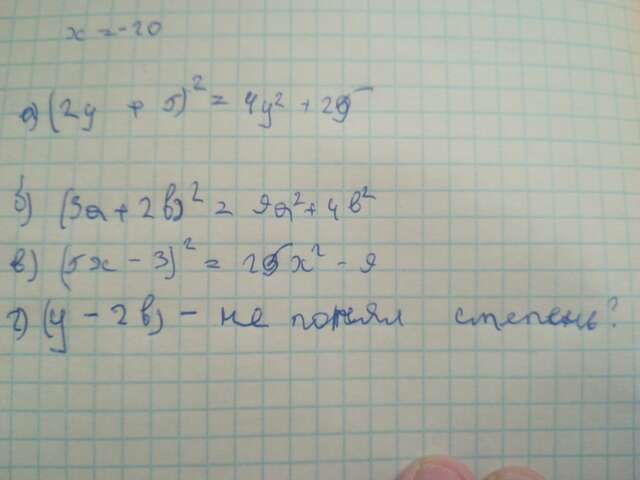 x = -20
а) (2y + 5)² = 4y² + 25
б) (3a + 2b)² = 9a² + 4b²
в) (5x - 3)² = 25x² - 9
г) (y - 2b) - не понял степень?